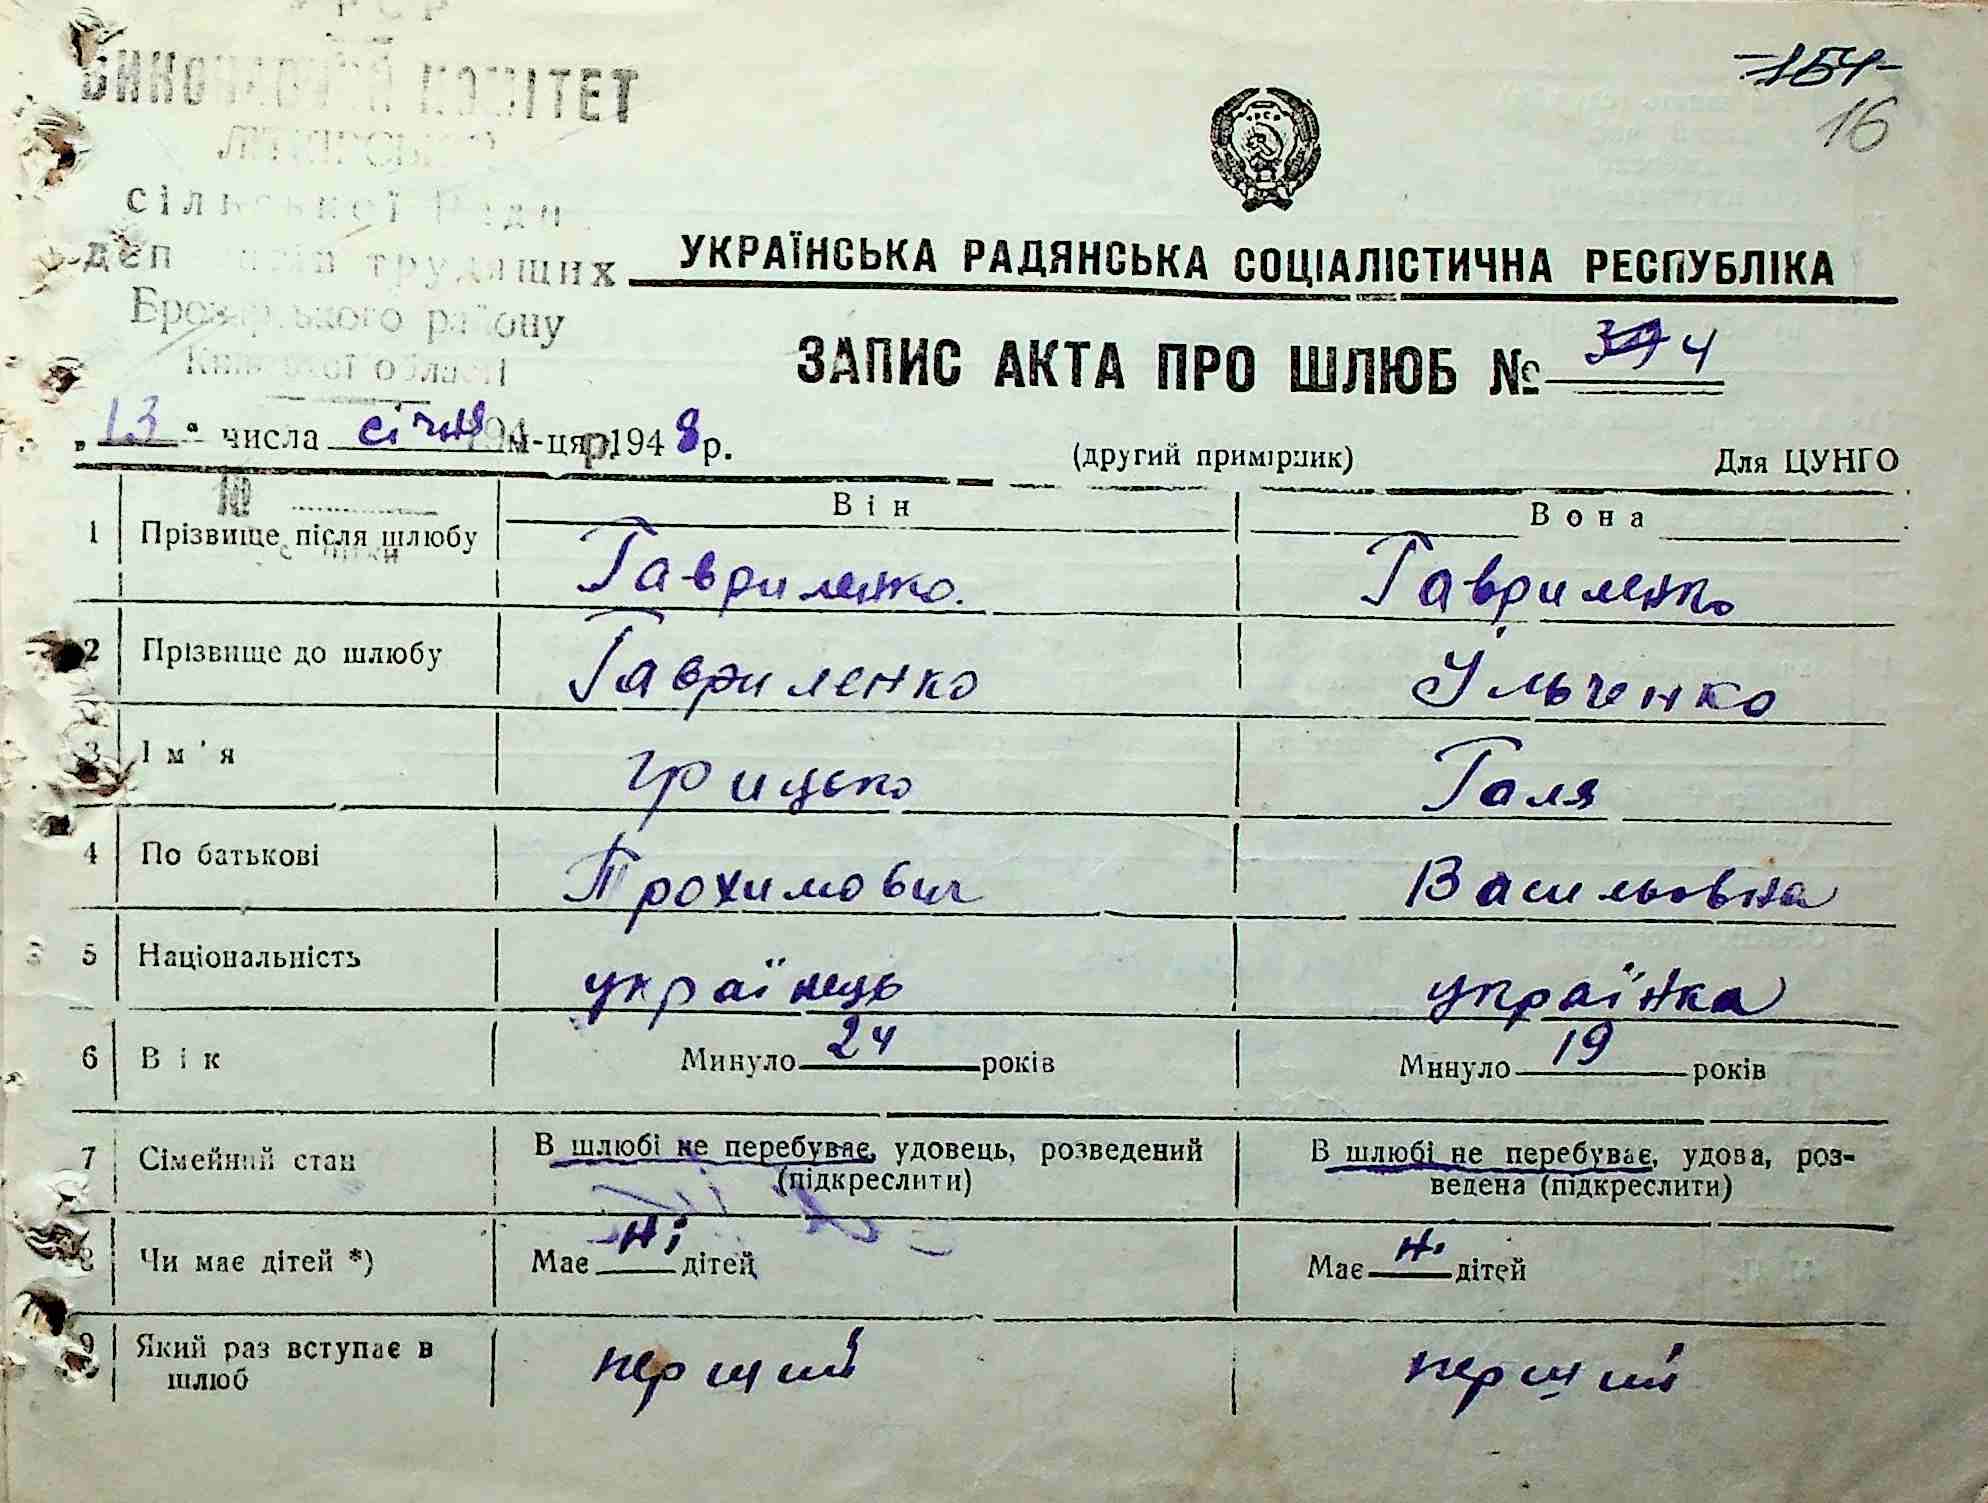 УРСР
ВИКОНАВЧИЙ КОМІТЕТ
сільської Ради
депутатів трудящих
Броварського району
Київської області
154
16
УКРАЇНСЬКА РАДЯНСЬКА СОЦІАЛІСТИЧНА РЕСПУБЛІКА
ЗАПИС АКТА ПРО ШЛЮБ № 4
„13“ числа січня м-ця 1948 р.
(другий примірник)
Для ЦУНГО
№
Він
Вона
1 Прізвище після шлюбу Гавриленко. Гавриленко
2 Прізвище до шлюбу Гавриленко Ільченко
3 Ім'я Грицько Галя
4 По батькові Трохимович Васильовна
5 Національність українець українка
6 Вік Минуло 24 років Минуло 19 років
7 Сімейний стан В шлюбі не перебуває, удовець, розведений В шлюбі не перебуває, удова, роз-
(підкреслити) ведена (підкреслити)
8 Чи має дітей *) Має ні дітей Має ні дітей
9 Який раз вступає в шлюб перший перший